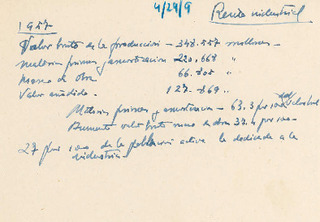 4/29/9
Renta industrial
1957
Valor bruto de la producción — 348.557 millones.
materias primas y amortización 220.668 "
mano de obra 66.805 "
Valor añadido. 127.869 "
Materias primas y amortización — 63.3 por 100 del
Aumento valor bruto mano de obra 37.4 por 100
27 por 100 de la población activa la dedicada a la
industria